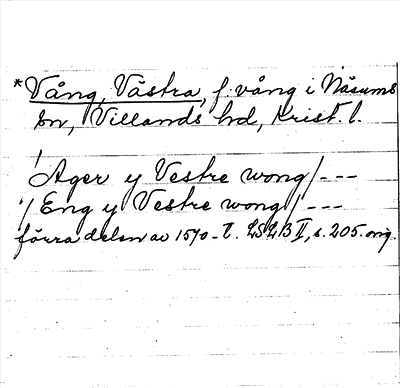 *Vång, Västra, f. vång i Näsums
sn, Villands hd, Krist. l.
1 Ager y Vestre wong/---
1/ Eng y Vestre wong/---
förra delen av 1570-t. LSLB II, s. 205. orig.